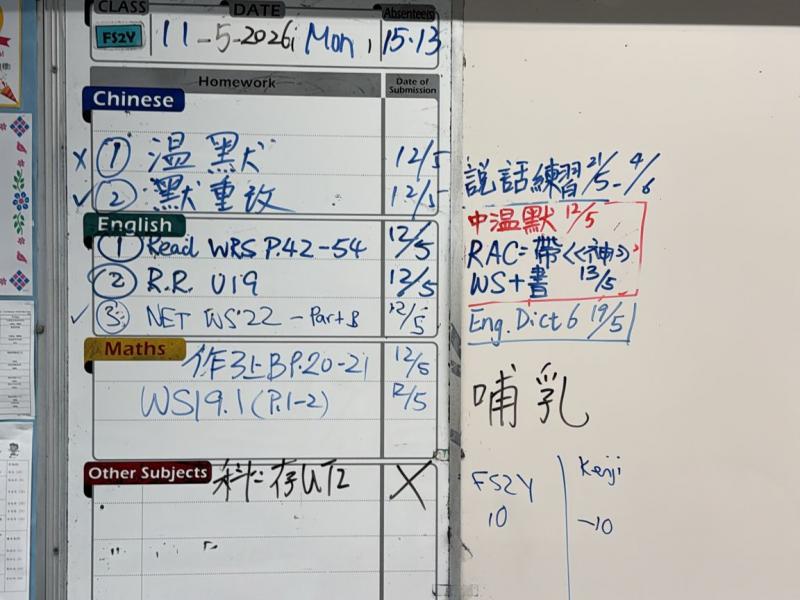 CLASS DATE Absentee(s)
FS2Y 11-5-2026, Mon, 15.13
Homework Date of Submission
Chinese
x ① 温默 12/5
✓ ② 默重改 12/5
English
① Read WRS P.42-54 12/5
② R.R. U19 12/5
✓ ③ NET WS22 - Part B 12/5
Maths
作3上B P.20-21 12/5
WS19.1 (P.1-2) 12/5
Other Subjects
科: 存UT2 X
説話練習 21/5 - 4/6
中温默 12/5
RAC: 帶《神》
WS+書 13/5
Eng. Dict 6 19/5
哺乳
FS2Y Kenji
10 -10